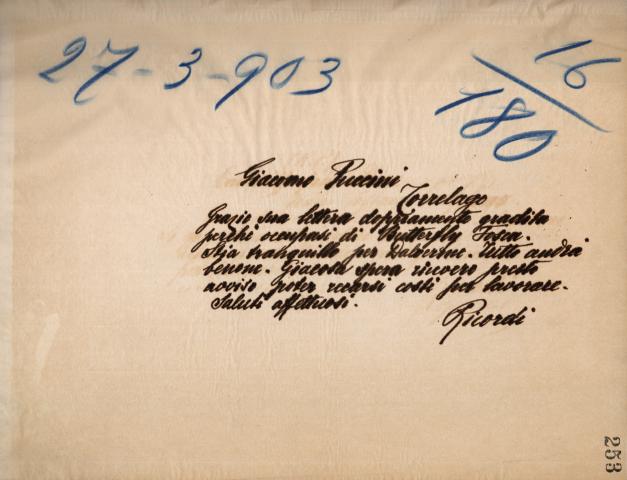 27-3-903
16/180
Giacomo Puccini
Torrelago
Grazie sua lettera doppiamente gradita
perchè occupasi di Butterfly Tosca.
Stia tranquillo per Dalverme. Tutto andrà
benone. Giacosa spera ricevere presto
avviso poter recarsi costì per lavorare.
Saluti affettuosi.
Ricordi
253